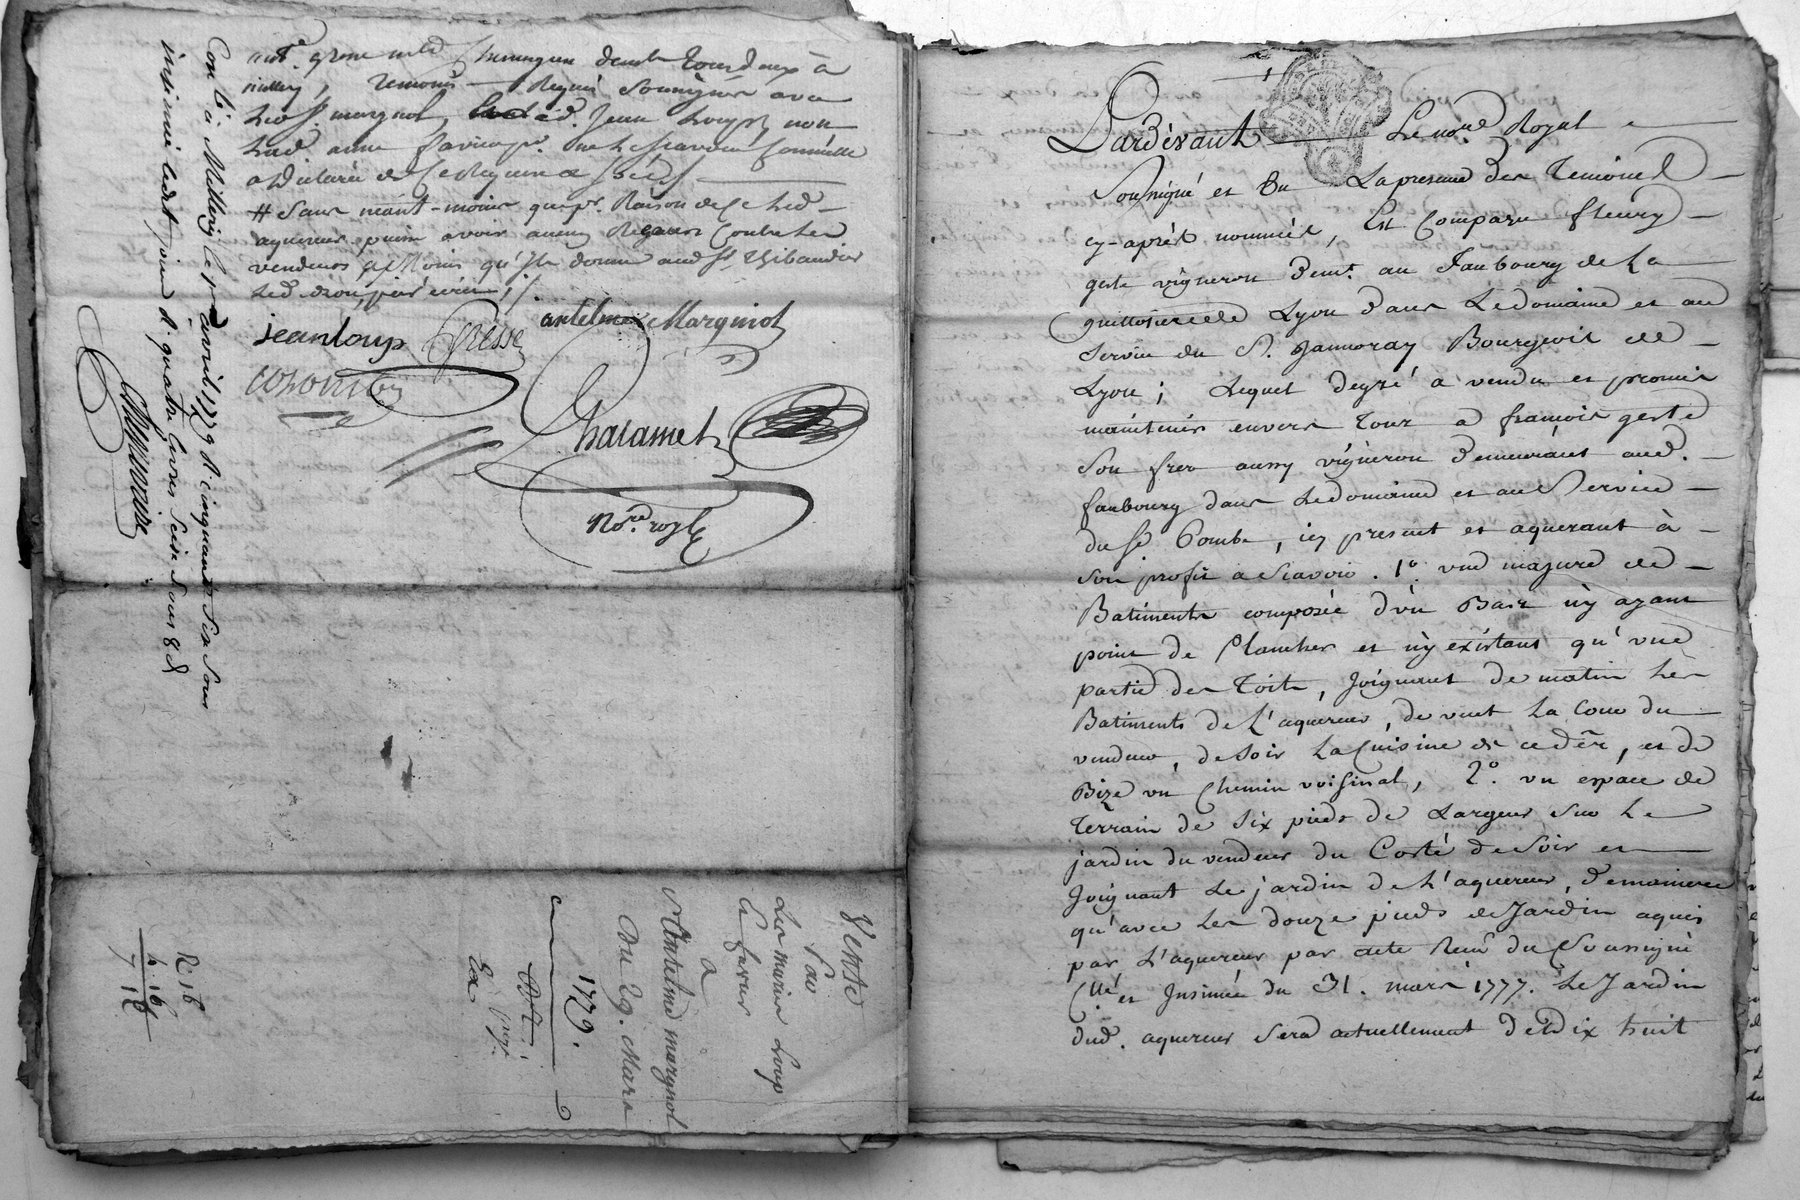 demt.
Temoins Requis Soussignés avec
led. sr. margnol, led. Jean Loup, non
lad. anne
# Sans néant-moins que pr. Raison de Ce led.
aquereur puisse avoir aucun Recours Contre les
vendeurs à Moins qu'Ils
jean loup Gresse antelme Marginol
Chalamel
No.re royl
Conlé à Millery le 1er avril 1779 R. cinquante Six Sous
insinué ledit jour R. quatre livres Seize Sous
Vente
Par
Les mariés Loup
Le favre
à
Antelme margnol
Du 29. Mars
1779.
Exp.
R. 16
4 16
Pardevant Le nore. Royal
Soussigné et En La presence des Temoins
cy-après nommés, Est Comparu fleury
geste vigneron demt. au Faubourg de La
guillotiere de Lyon dans Le domaine et au
Service du Sr. Jannoray Bourgeois de
Lyon; Lequel degré a vendu et promis
maintenir envers Tous a françois geste
Son frere aussy vigneron demeurant aud.
faubourg dans Le domaine et au Service
du Sr. Combe, icy present et aquerant à
Son profit a Scavoir. 1°. une mazure de
Batiments composée d'un Bas n'y ayant
point de Plancher et n'y existant qu'une
partie des Toits, Joignant de matin les
Batiments de L'aquereur, de vent La Cour du
vendeur, de soir La Cuisine de ce der., et de
Bize un Chemin voisinal, 2°. un espace de
Terrain de six pieds de Largeur Sur Le
jardin du vendeur du Costé de Soir et
Joignant Le jardin de L'aquereur, de maniere
qu'avec Les douze pieds de Jardin aquis
par L'aquereur par acte Recu du Soussigné
Cllé et Insinué du 31. mars 1777. Le Jardin
dud. aquereur Sera actuellement de Dix huit